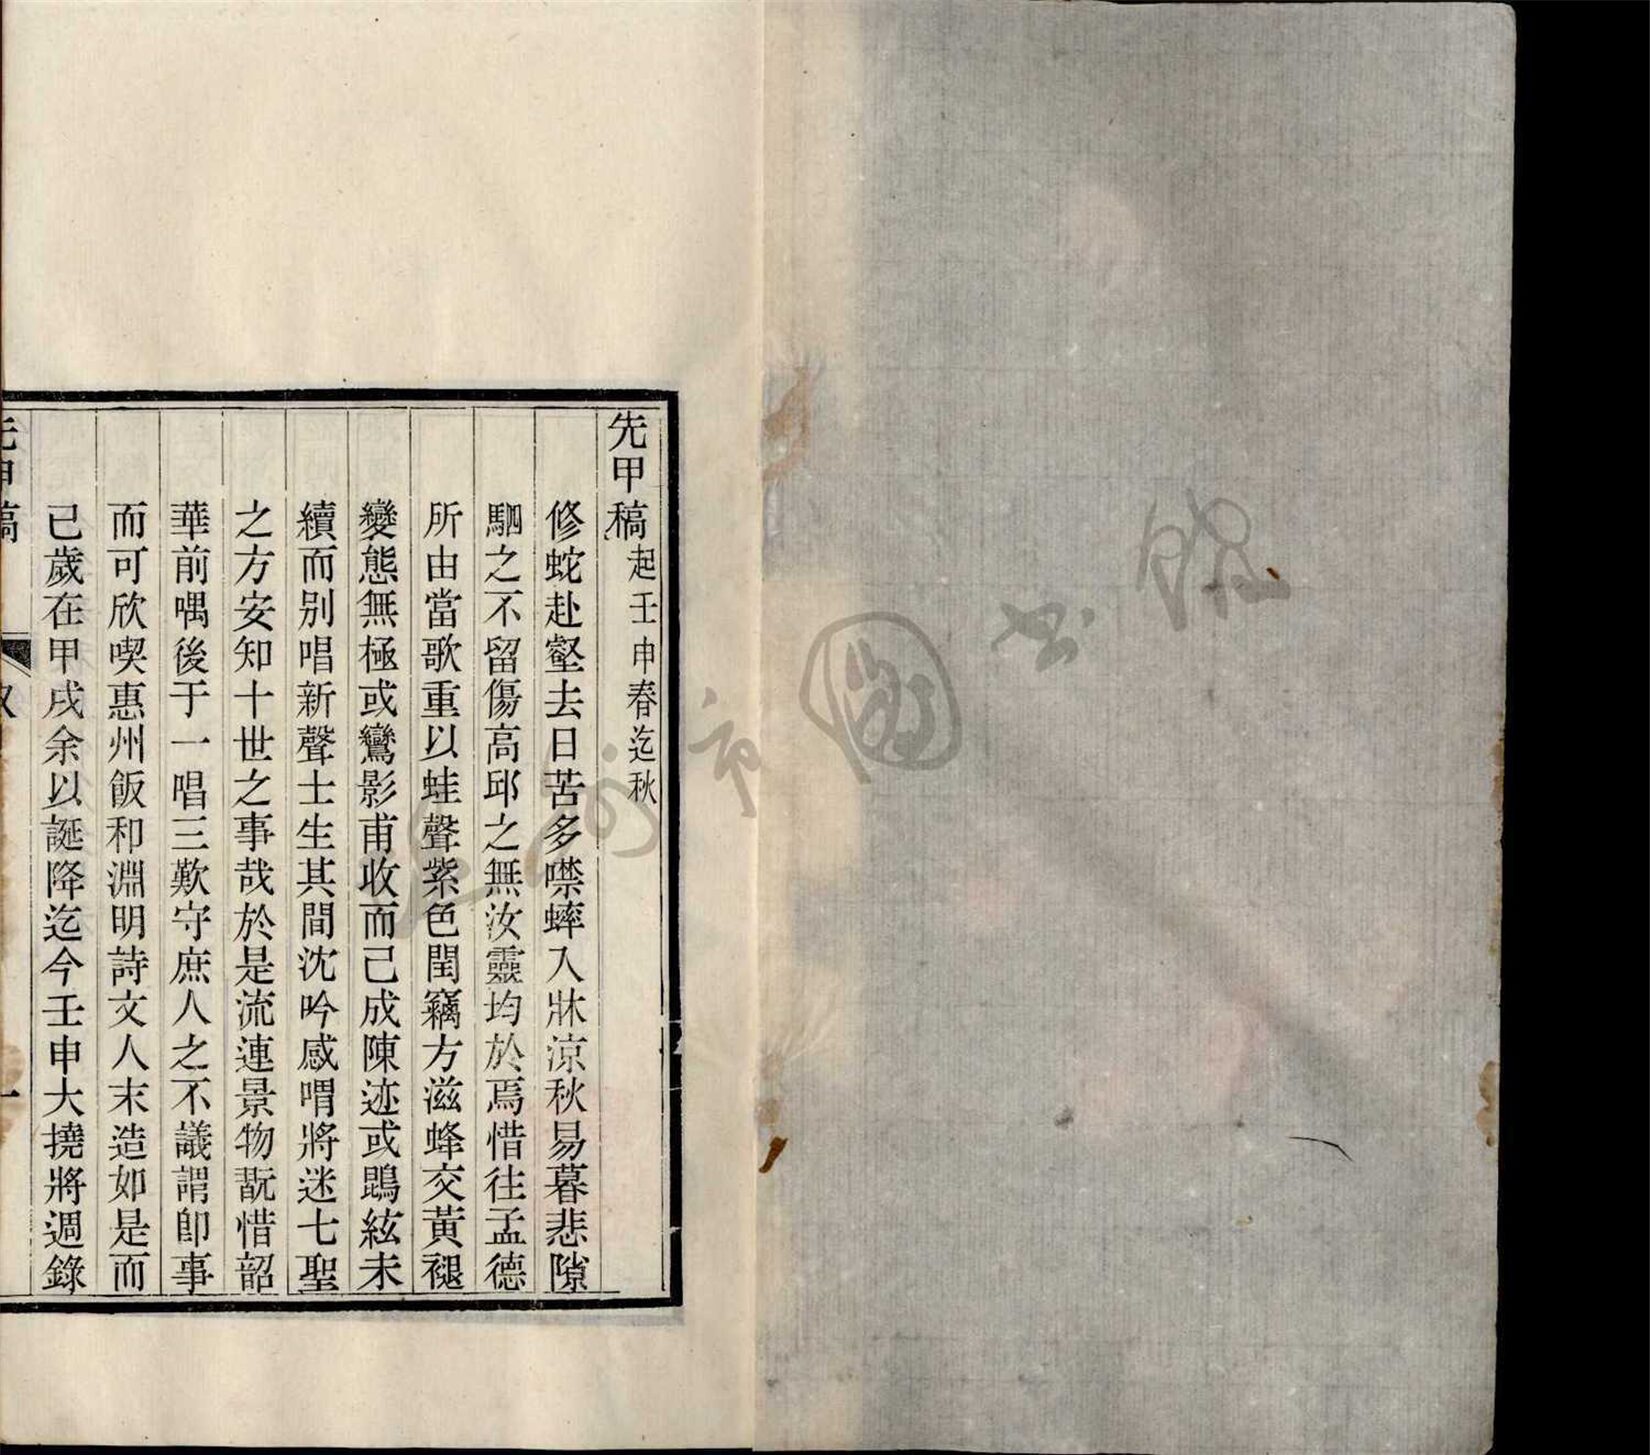 先甲稿起壬申春迄秋
修蛇赴壑去日苦多噤蟀入牀涼秋易暮悲隙
駟之不留傷高邱之無汝靈均於焉惜往孟德
所由當歌重以蛙聲紫色閏竊方滋蜂交黃褪
變態無極或鸞影甫收而已成陳迹或鵾絃未
續而別唱新聲士生其間沈吟感喟將迷七聖
之方安知十世之事哉於是流連景物翫惜韶
華前喁後于一唱三歎守庶人之不議謂卽事
而可欣喫惠州飯和淵明詩文人末造如是而
已歲在甲戌余以誕降迄今壬申大撓將週錄
先甲稿
一
市圖书馆